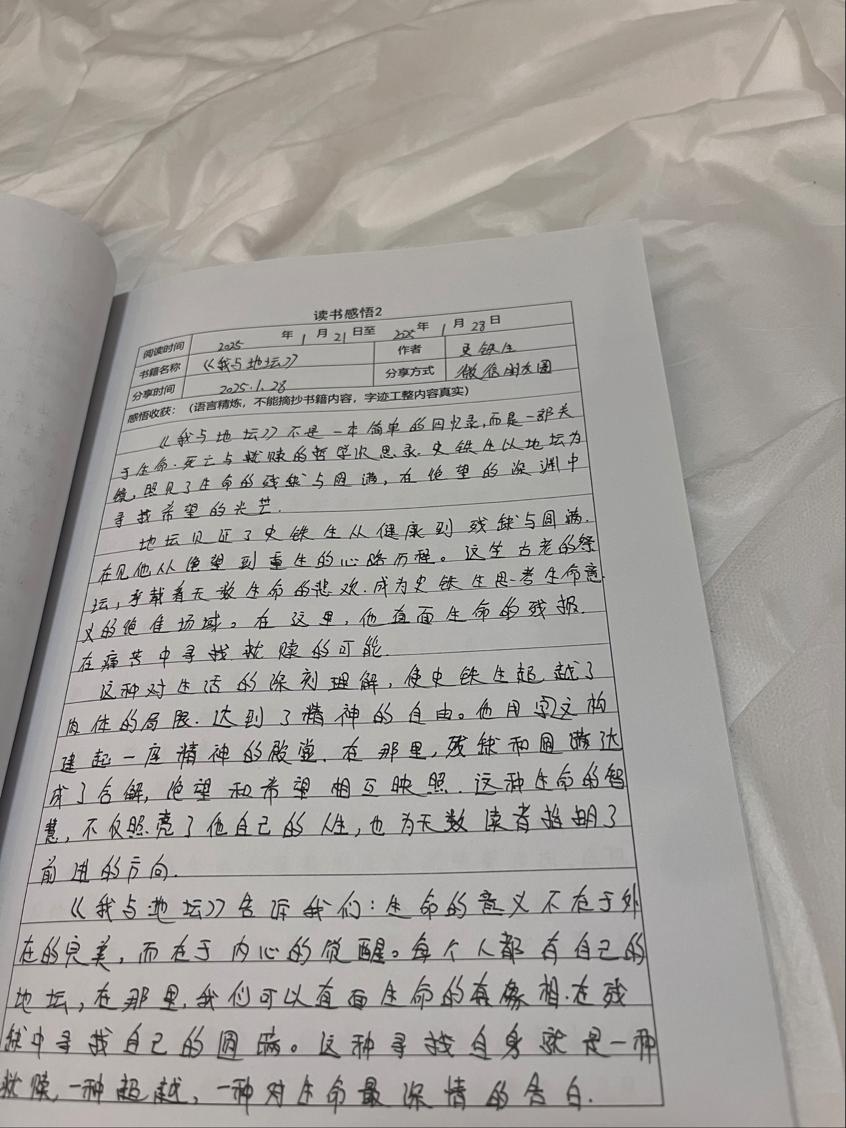 读书感悟2
阅读时间 2025 年 1 月 21 日至 2025 年 1 月 28 日
书籍名称 《我与地坛》 作者 史铁生
分享时间 2025.1.28 分享方式 微信朋友圈
感悟收获：（语言精炼，不能摘抄书籍内容，字迹工整内容真实）
《我与地坛》不是一本简单的回忆录,而是一部关
于生命.死亡与救赎的哲学沉思录.史铁生以地坛为
镜,照见了生命的残缺与圆满,在绝望的深渊中
寻找希望的光芒.
地坛见证了史铁生从健康到残缺与圆满.
在见他从绝望到重生的心路历程。这坐古老的祭
坛,承载着无数生命的悲欢.成为史铁生思考生命意
义的绝佳场域。在这里,他直面生命的残报.
在痛苦中寻找救赎的可能.
这种对生活的深刻理解,使史铁生超越了
肉体的局限.达到了精神的自由。他用文构
建起一座精神的殿堂.在那里,残缺和圆满达
成了合解,绝望和希望相互映照.这种生命的智
慧,不仅照亮了他自己的人生,也为无数读者指明了
前进的方向.
《我与地坛》告诉我们:生命的意义不在于外
在的完美,而在于内心的觉醒。每个人都有自己的
地坛,在那里,我们可以直面生命的真相.在残
缺中寻找自己的圆满。这种寻找自身就是一种
救赎,一种超越,一种对生命最深情的告白.